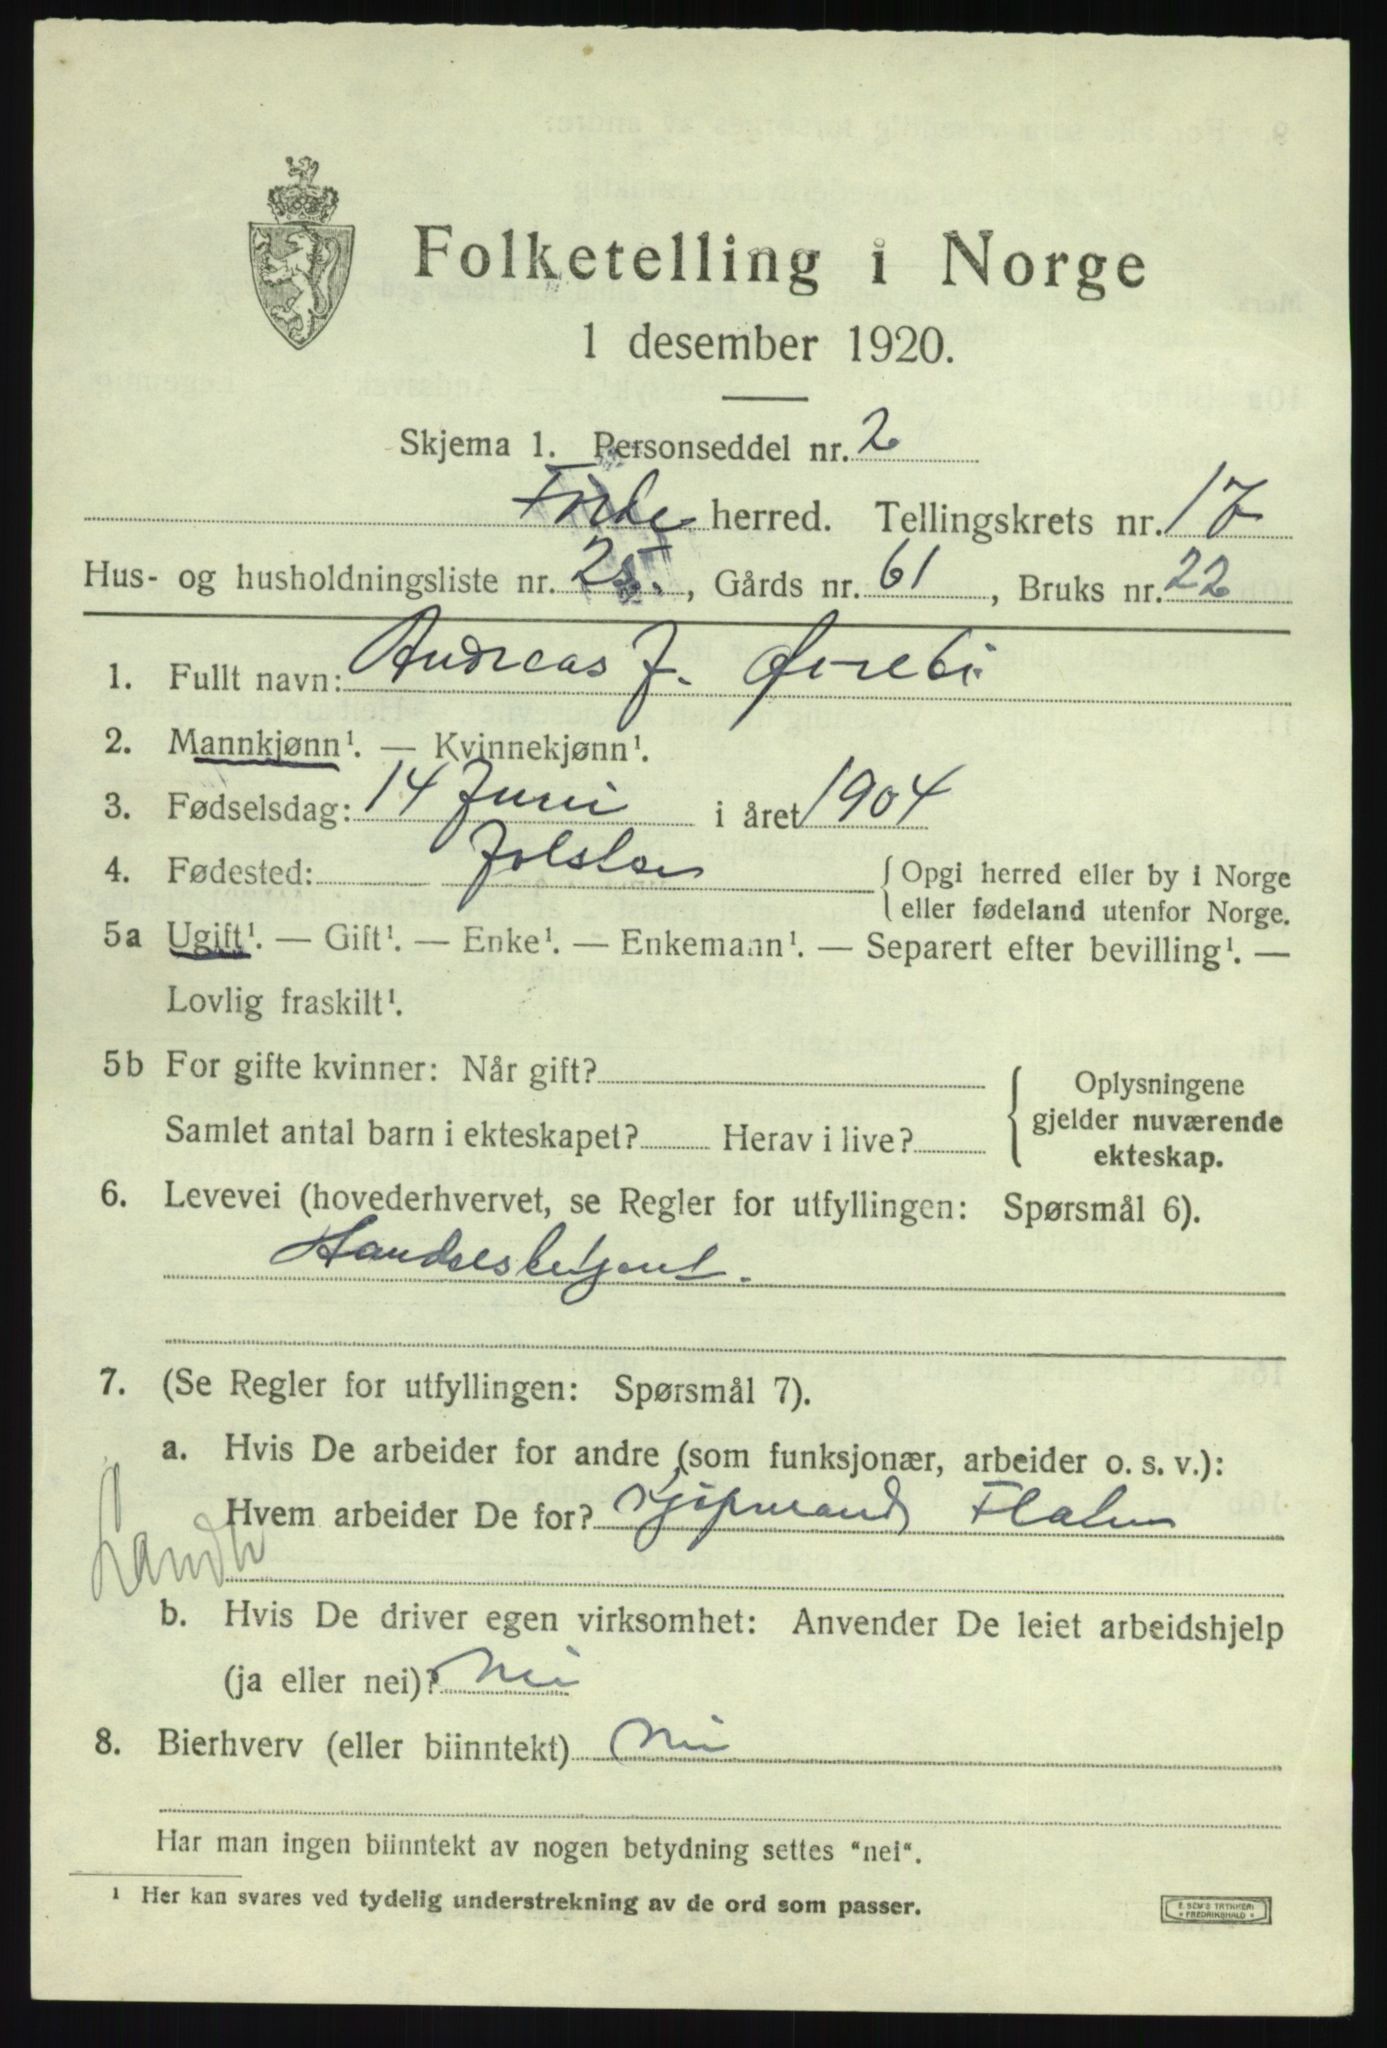 Folketelling i Norge
1 desember 1920.
Skjema 1. Personseddel nr. 2
Førde herred. Tellingskrets nr. 17
Hus- og husholdningsliste nr. 25., Gårds nr. 61, Bruks nr. 22
1. Fullt navn: Andreas J.
2. Mannkjønn¹. — Kvinnekjønn¹.
3. Fødselsdag: 14 Juni i året 1904
4. Fødested: Jølster { Opgi herred eller by i Norge
eller fødeland utenfor Norge.
5a Ugift¹. — Gift¹. — Enke¹. — Enkemann¹. — Separert efter bevilling¹. —
Lovlig fraskilt¹.
5b For gifte kvinner: Når gift? { Oplysningene
gjelder nuværende
Samlet antal barn i ekteskapet? Herav i live?
ekteskap.
6. Levevei (hovederhvervet, se Regler for utfyllingen: Spørsmål 6).
Handelsbetjent.
7. (Se Regler for utfyllingen: Spørsmål 7).
a. Hvis De arbeider for andre (som funksjonær, arbeider o. s. v.):
Hvem arbeider De for? Kjøpmand
Landh
b. Hvis De driver egen virksomhet: Anvender De leiet arbeidshjelp
(ja eller nei)? Nei
8. Bierhverv (eller biinntekt) Nei
Har man ingen biinntekt av nogen betydning settes "nei".
¹ Her kan svares ved tydelig understrekning av de ord som passer.
E. SEM'S TRYKKERI
* FREDRIKSHALD *